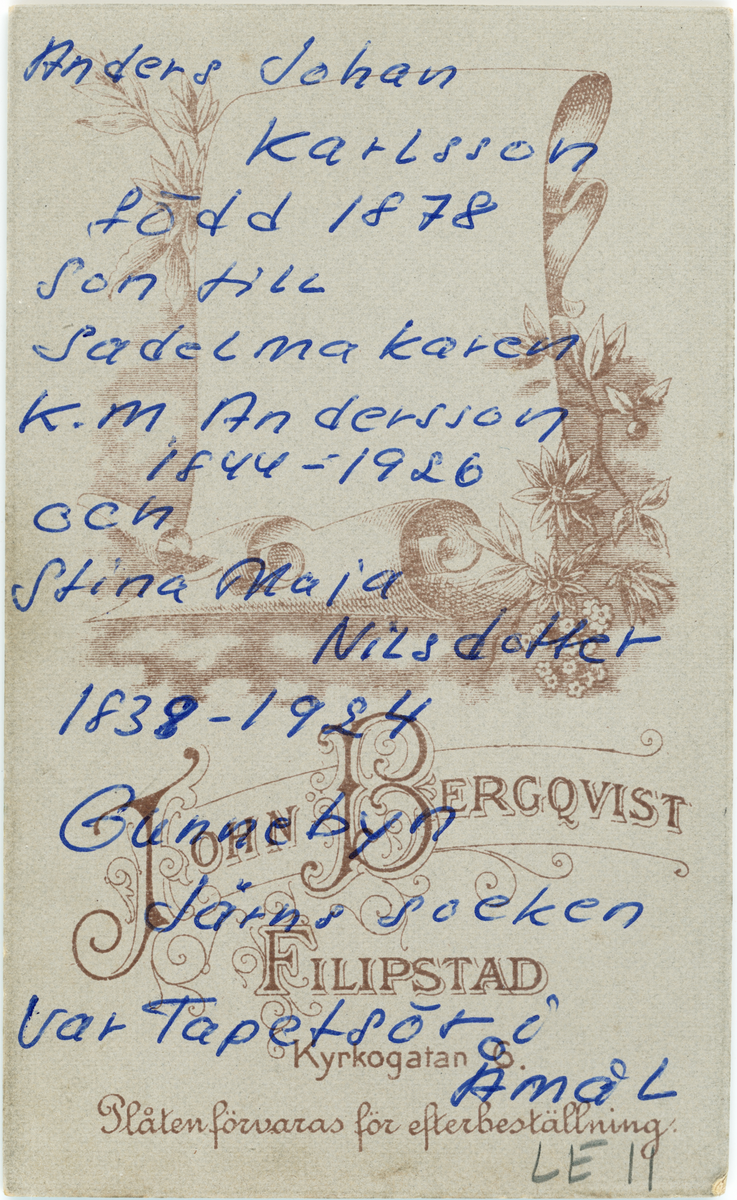 Anders Johan
Karlsson
född 1878
Son till
Sadelmakaren
K.M Andersson
1844-1926
och
Stina Maja
Nilsdotter
1838-1924
JOHN BERGQVIST
Gunnebyn
Järns socken
FILIPSTAD
Var Tapetsör i
Kyrkogatan 6.
Åmål
Plåten förvaras för efterbeställning.
LE 19